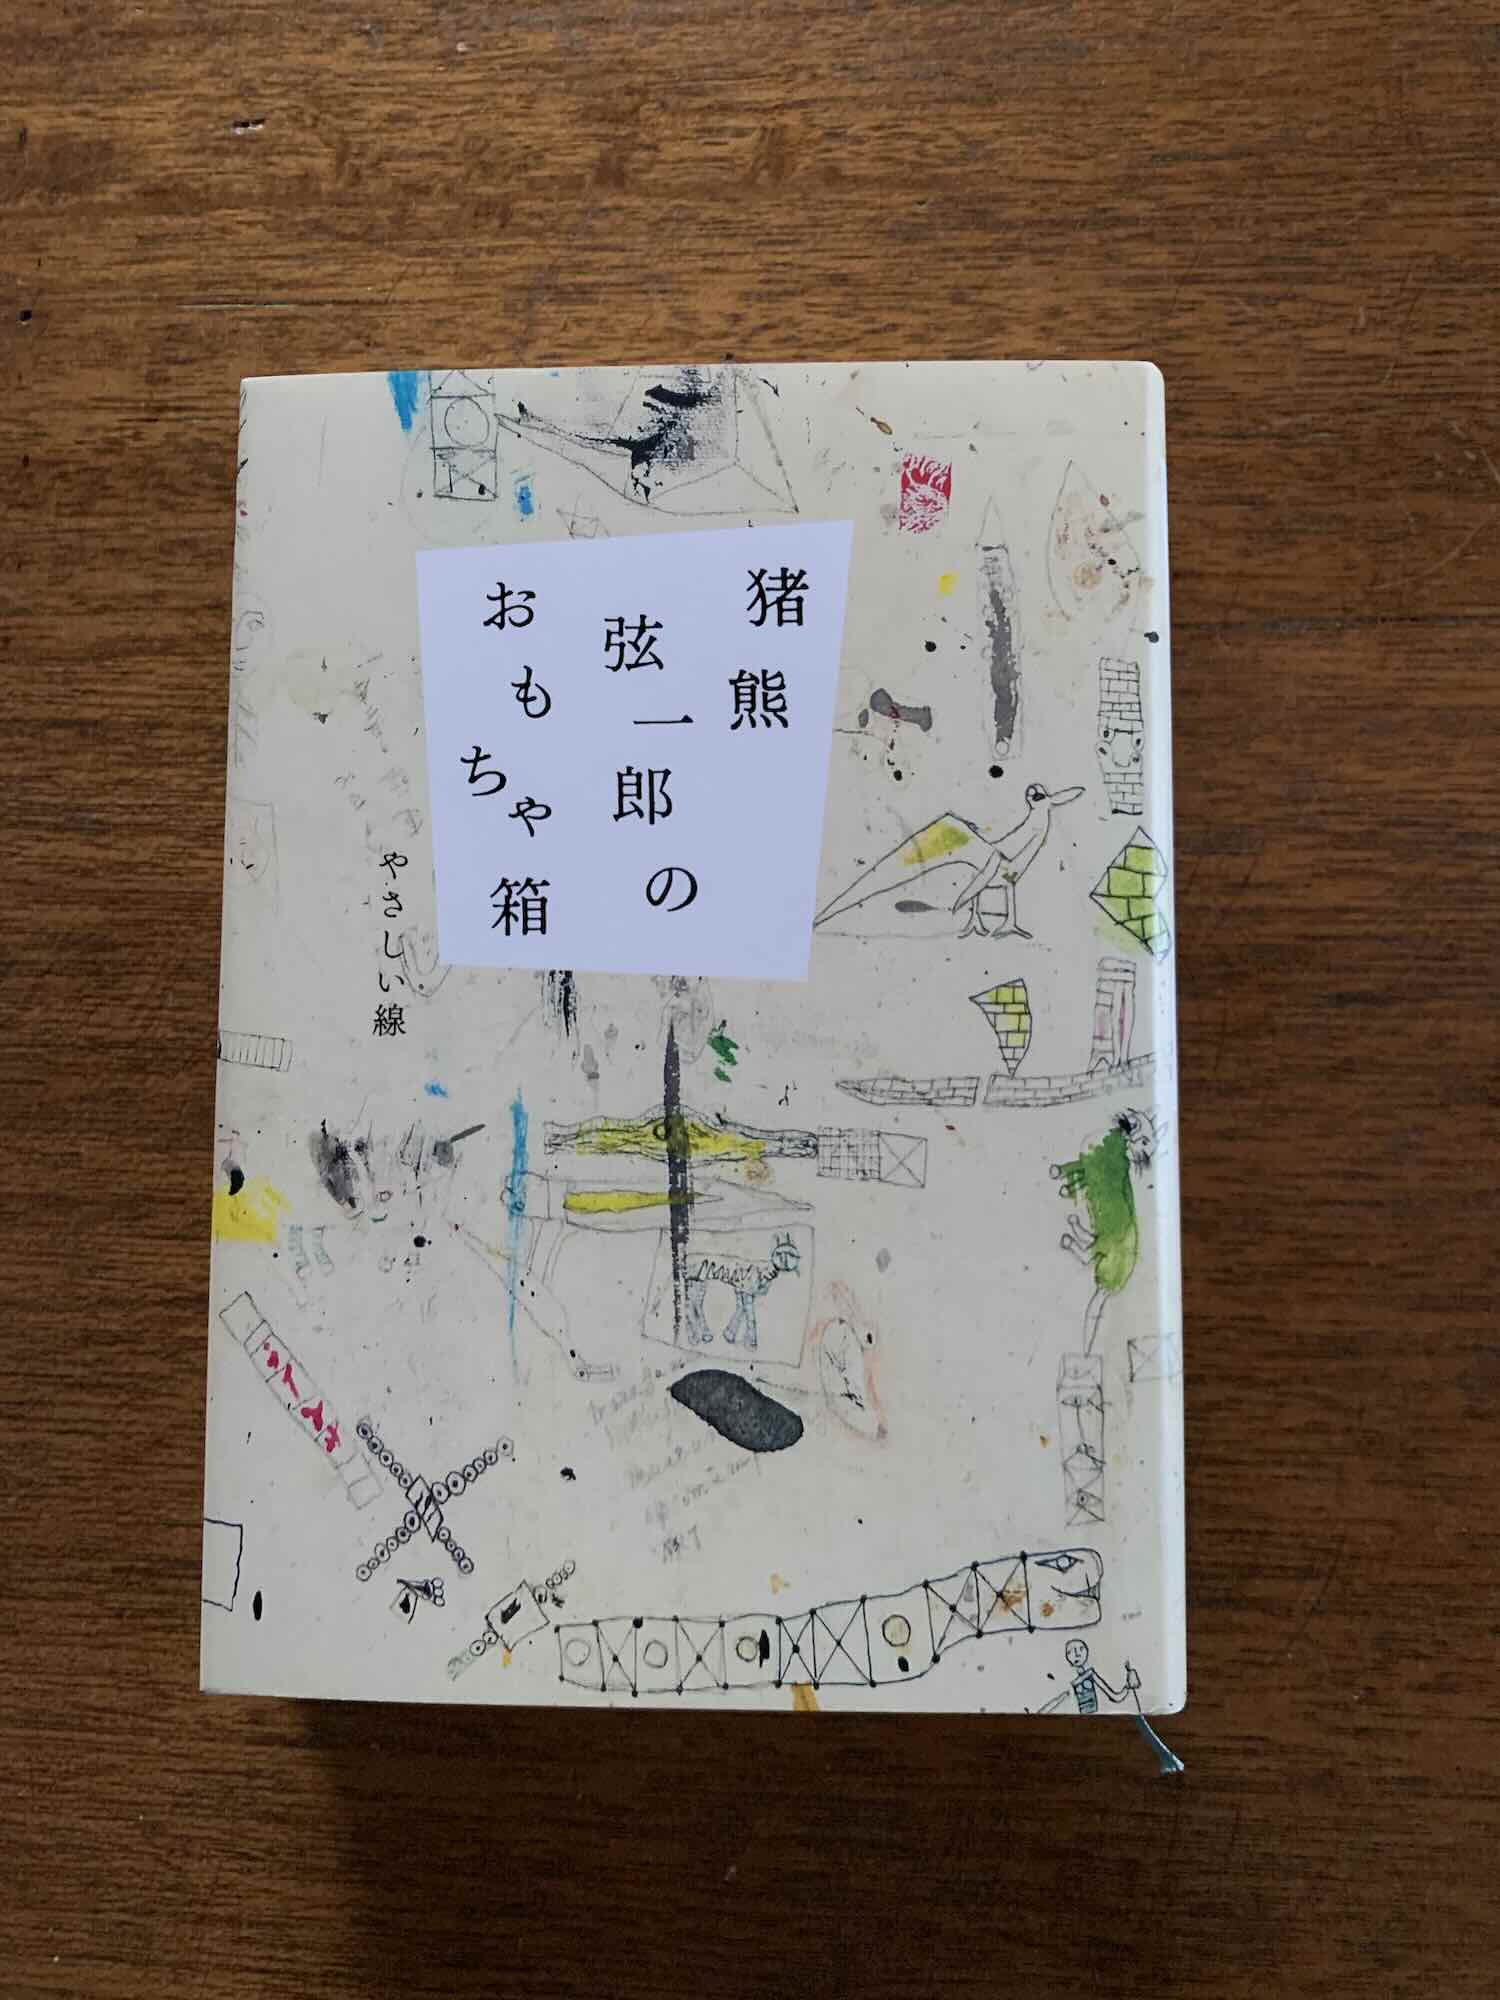 猪熊
弦一郎の
おもちゃ箱
やさしい線